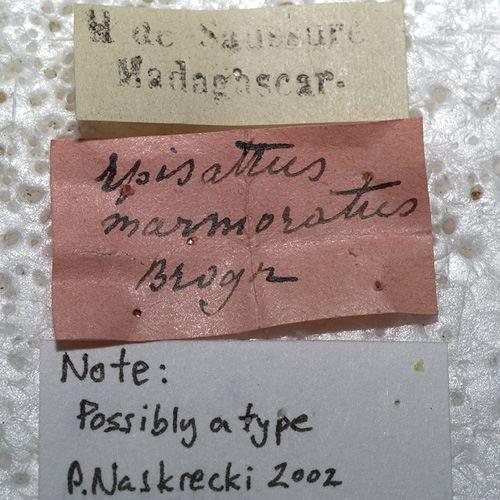 H de Saussure
Madagascar.
Episattus
marmoratus
Brogr
Note:
Possibly a type
P. Naskrecki 2002